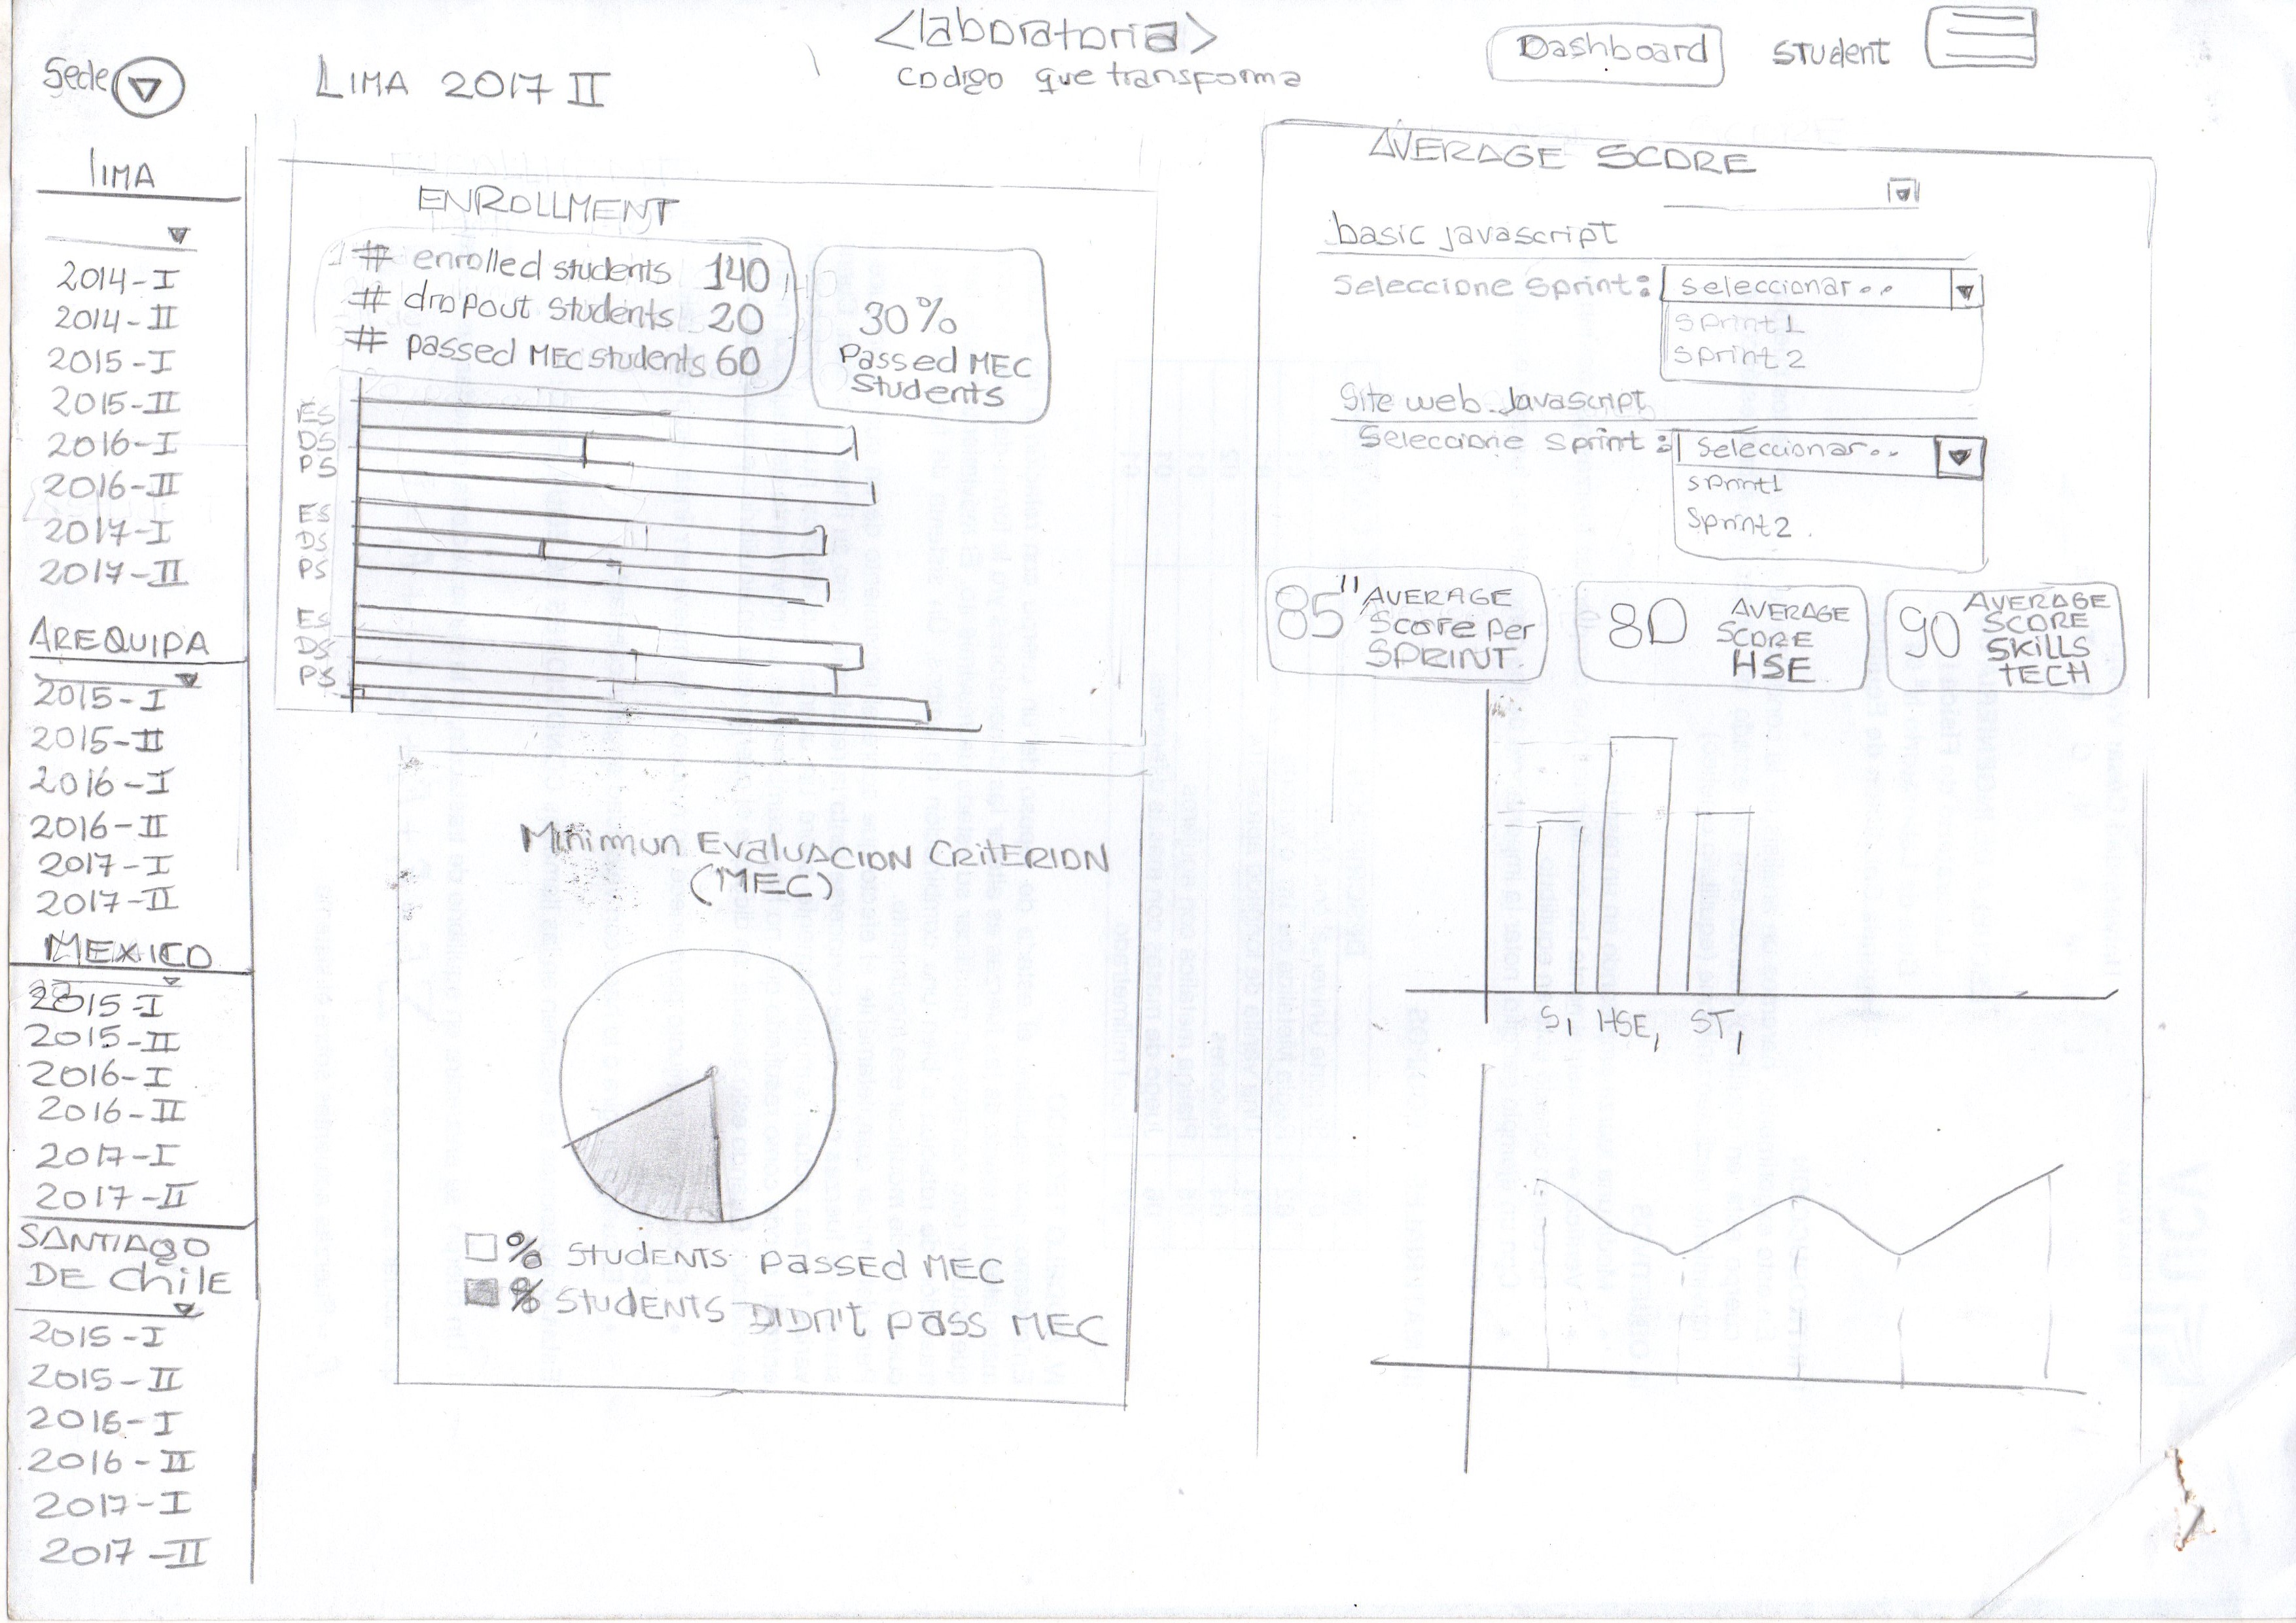 <laboratoria>
codigo que transforma
Dashboard
Student
Sede
LIMA 2017 II
LIMA
2014-I
2014-II
2015-I
2015-II
2016-I
2016-II
2017-I
2017-II
AREQUIPA
2015-I
2015-II
2016-I
2016-II
2017-I
2017-II
MEXICO
2015-I
2015-II
2016-I
2016-II
2017-I
2017-II
SANTIAGO
DE ChiLE
2015-I
2015-II
2016-I
2016-II
2017-I
2017-II
ENROLLMENT
# enrolled students 140
# dropout students 20
# passed MEC students 60
30%
Passed MEC
Students
ES
DS
PS
ES
DS
PS
ES
DS
PS
Minimun EvaluACION CRITERION
(MEC)
% STUDENTS PASSED MEC
% STUDENTS DIDn't pass MEC
AVERAGE SCORE
basic javascript
Seleccione Sprint: Seleccionar...
Sprint1
Sprint2
Site web Javascript
Seleccione Sprint: Seleccionar...
Sprint1
Sprint2
85 AVERAGE
Score per
SPRINT
80 AVERAGE
SCORE
HSE
90 AVERAGE
SCORE
SKills
TECH
S1 HSE1 ST1